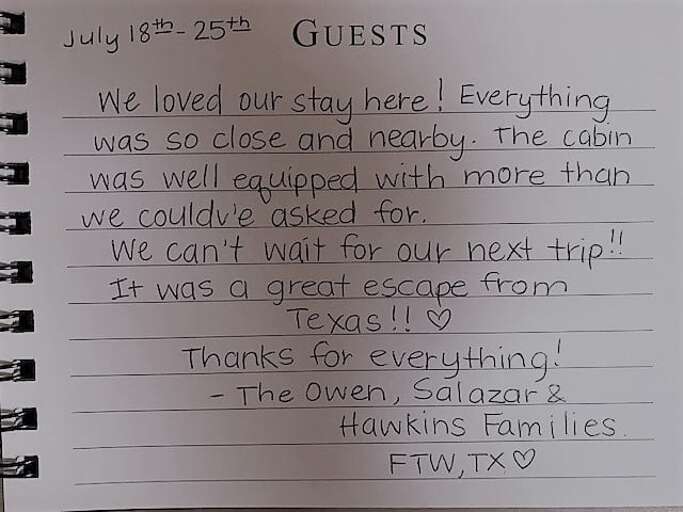 July 18th - 25th GUESTS
We loved our stay here! Everything
was so close and nearby. The cabin
was well equipped with more than
we couldv'e asked for.
We can't wait for our next trip!!
It was a great escape from
Texas!! ♡
Thanks for everything!
- The Owen, Salazar &
Hawkins Families.
FTW, TX ♡